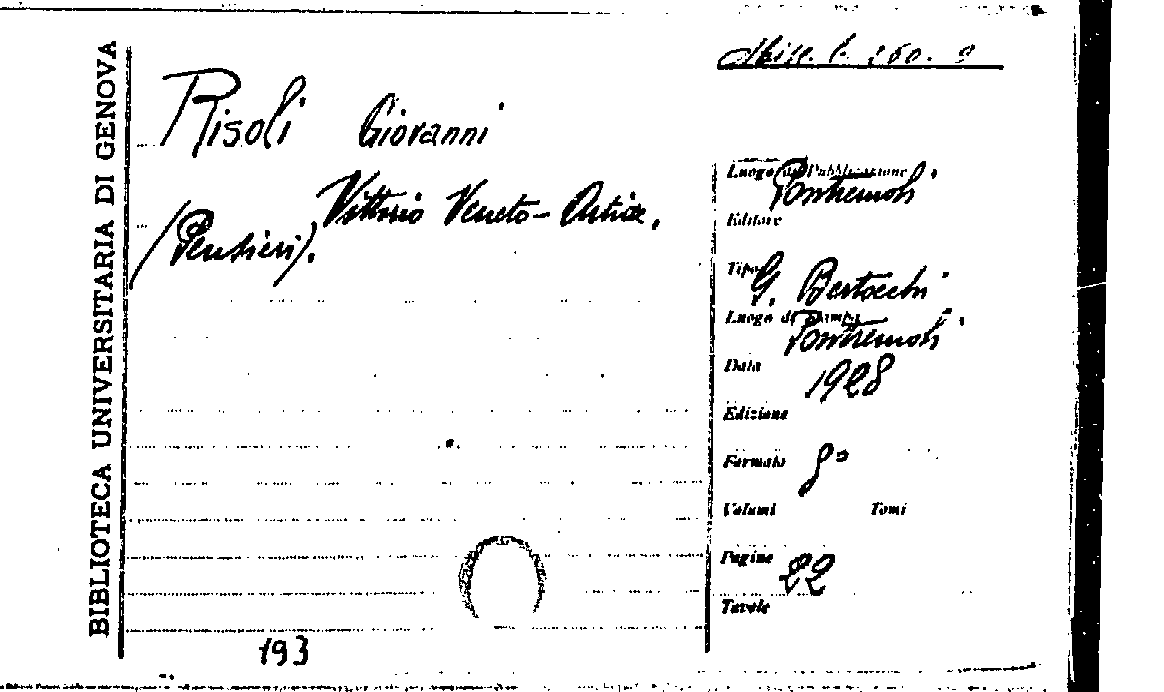 BIBLIOTECA UNIVERSITARIA DI GENOVA
Misc. C. 160. 9
Risoli Giovanni
Vittorio Veneto -
(Pensieri).
Luogo di Pubblicazione Pontremoli
Editore
Tipo G. Bertocchi
Luogo di Stampa Pontremoli
Data 1928
Edizione
Formato 8°
Volumi Tomi
Pagine 22
Tavole
193